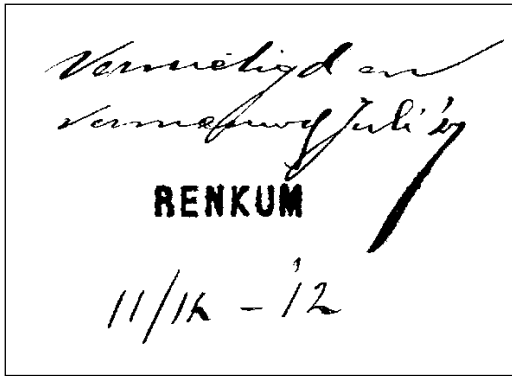 Vernietigd en
vernieuwd Juli '27
RENKUM
- '12